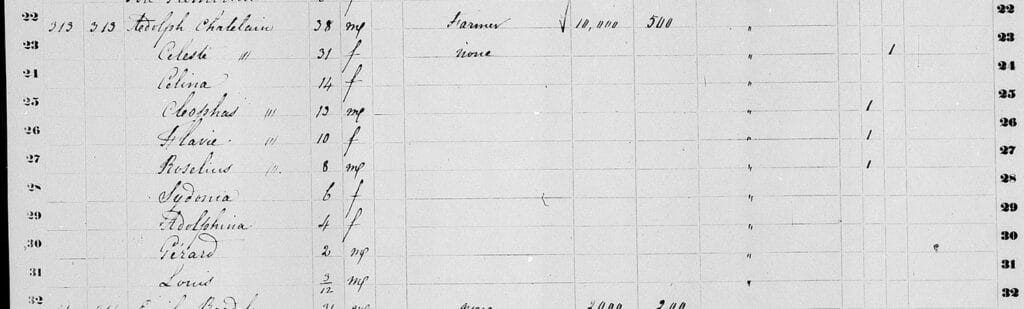 22 22
313 313 Adolph Châtelain 38 m Farmer 10,000 500 "
23 23
Celeste " 31 f none " 1
24 24
Celina 14 f "
25 25
Cleophas " 13 m " 1
26 26
Flavie " 10 f " 1
27 27
Roselius " 8 m " 1
28 28
Sydonia 6 f "
29 29
Adolphina 4 f "
30 30
Gérard 2 m "
31 31
Louis 3/12 m "
32 32